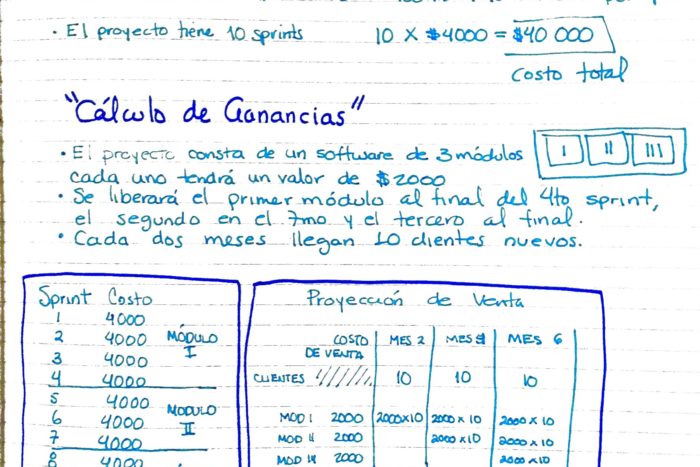 · El proyecto tiene 10 sprints 10 X $4000 = $40 000
costo total
"Cálculo de Ganancias"
· El proyecto consta de un software de 3 módulos
I II III
cada uno tendrá un valor de $2000
· Se liberará el primer módulo al final del 4to sprint,
el segundo en el 7mo y el tercero al final.
· Cada dos meses llegan 10 clientes nuevos.
Sprint Costo
1 4000
2 4000 MÓDULO
3 4000 I
4 4000
5 4000
6 4000 MODULO
7 4000 II
8 4000
Proyección de Venta
COSTO DE VENTA MES 2 MES 4 MES 6
CLIENTES 10 10 10
MOD I 2000 2000x10 2000 x 10 2000 x 10
MOD II 2000 2000 x 10 2000 x 10
MOD III 2000 2000 x 10